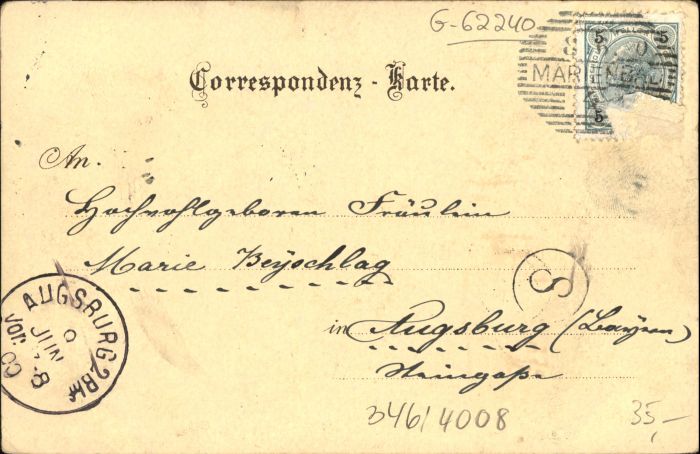 G-62240
5 5
MARIENBAD
5
Correspondenz-Karte.
An.
Hochwohlgeboren Fräulein
Marie Beyschlag
S
in Augsburg (Bayern)
Steingaße
AUGSBURG 2. Bhf
JUN
Vor.
8-
346/4008
35,-